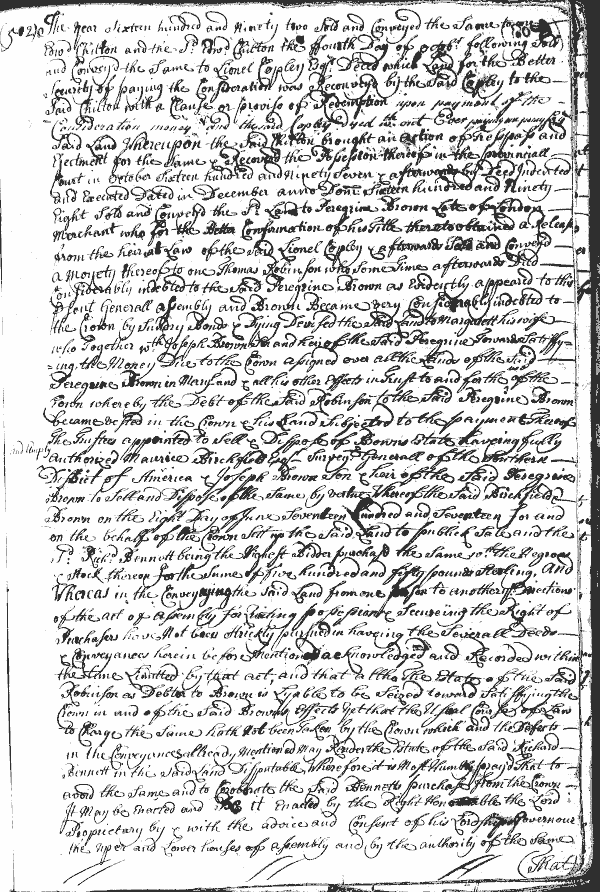 The Year Sixteen hundred and Ninety two Sold and Conveyed the Same to one
Edwd Chilton and the sd. Edwd. Chilton the fourth Day of following Sold
and Conveyd the Same to Lionel Copley Esqr. Deed which Land for the Better
Security of paying the Consideration was Reconveyd by the Said Copley to the
Said Chilton with a Clause or proviso of Redemption upon payment of the
Consideration money and the said Copley Dyed
Said Land Whereupon the Said Chilton brought an action of Trespass and
Ejectment for the Same & Recovered the Possession thereof in the provinciall
Court in October Sixteen hundred and Ninety Seven & afterwards by Deed Indented
and Executed Dated in December anno Dom: Sixteen hundred and Ninety
Eight Sold and Conveyd the sd. Land to Peregrine Brown Late of London
Merchant who for the Better Confirmation of his Title thereto obtained a Release
from the heir at Law of the said Lionel Copley & afterwards Sold and Conveyd
a Moyety thereof to one Thomas Robinson who Some time afterwards Died
Considerably indebted to the Said Peregrine Brown as Evidently appeared to this
present Generall assembly and Brown Became very Considerably indebted to
the Crown by Sundry Bonds & Dying Devised the Said Land to Margarett his wife
who Together wth. Joseph Brown Son and heir of the Said Peregrine Towards Sattisfy-
=ing the Money Due to the Crown assigned over all the Lands of the Said
Peregrine Brown in Maryland & all his other Effects in Trust to and for the use of the
Crown whereby the Debt of the Said Robinson to the Said Peregrine Brown
became vested in the Crown & his Land Subjected to the payment thereof
The Trustees appointed to Sell & Dispose of Browns Estate haveing fully
and amply authorized Maurice Birchfield Esqr. Surveyr. Generall of the Northern
District of America & Joseph Brown Son & heir of the Said Peregrine
Brown to Sell and Dispose of the Same by virtue whereof the Said Birchfield &
Brown on the Eight Day of June Seventeen hundred and Seventeen for and
on the behalf of the Crown Sett up the Said Land to publick Sale and the
sd. Richd. Bennett being the Highest Bidder purchased the Same wth. the Negroes
& Stock thereon for the Sume of five hundred and fifty pounds Sterling. And
Whereas in the Conveying the Said Land from one person to another ye. Directions
of the act of assembly for Quieting possessions & Secureing the Right of
Purchasers have Not been Strickly pursued in haveing the Severall Deeds
& Conveyances herein before Mentioned acknowledged and Recorded within
the time Limitted by that act, and that altho the Estate of the Said
Robinson as Debtor to Brown is Lyable to be Seized toward Sattisfying the
Crown in and of the Said Browns Effects yet that the Usual Course of Law
to Charge the Same hath Not been taken by the Crown which and the Defects
in the Conveyances already Mentioned May Render the Estate of the Said Richard
Bennett in the Said Land Disputable Wherefore it is Most Humbly prayd that to
avoid the Same and to Corroborate the Said Bennetts purchase from the Crown
It May be Enacted and Be it Enacted by the Right Honourable the Lord
Proprietary by & with the advice and Consent of his Lordships Governour
the Uper and Lower houses of assembly and by the authority of the Same
That